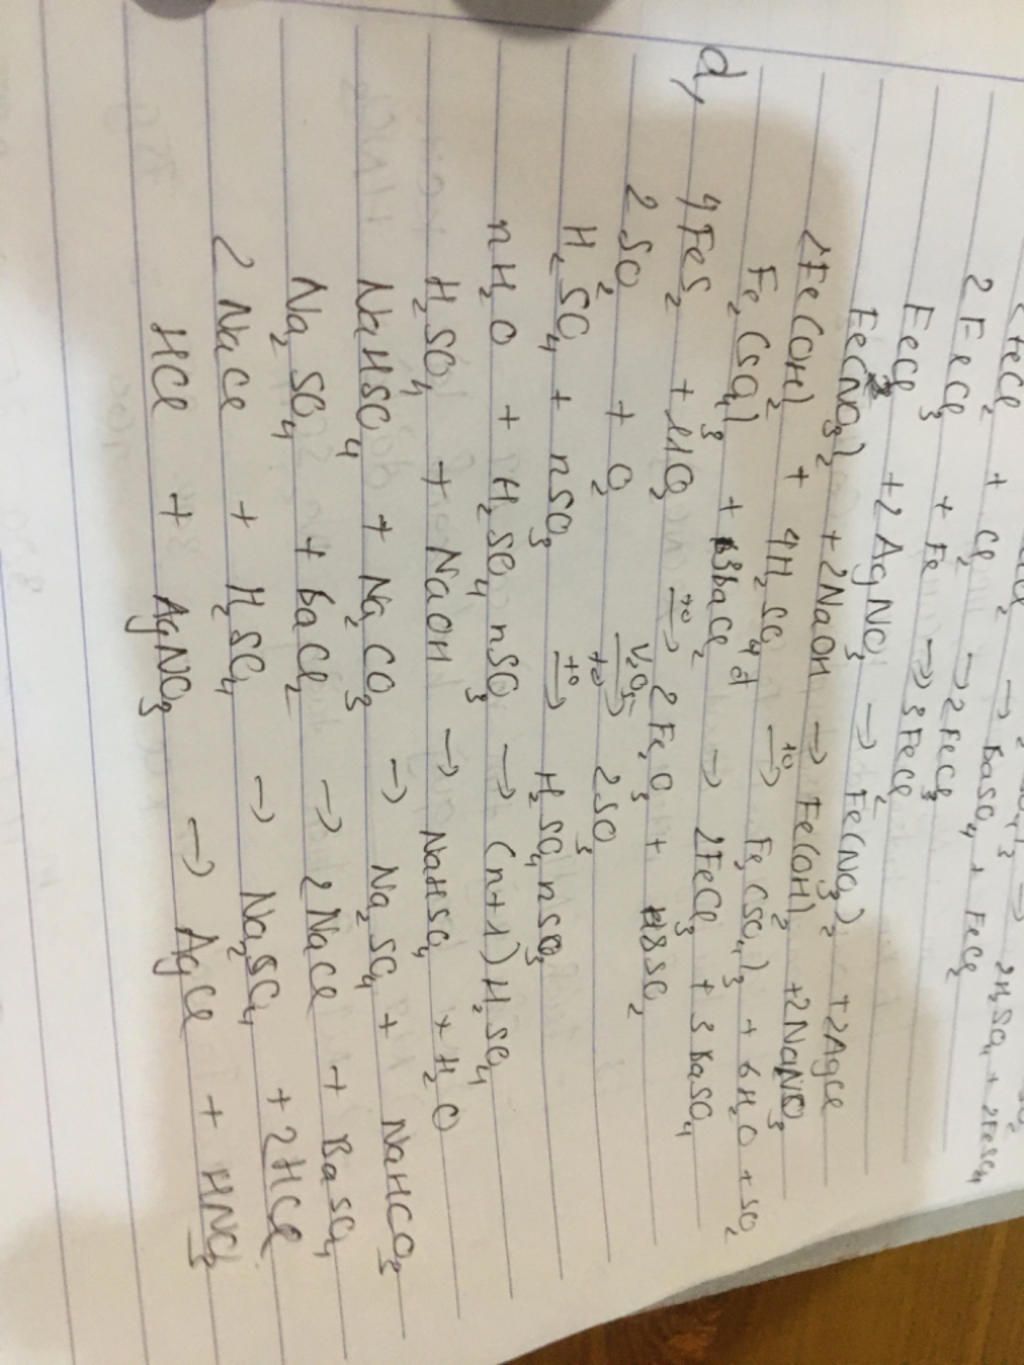 2FeCl₃ + Fe → 3FeCl₂
FeCl₂ + 2AgNO₃ → Fe(NO₃)₂ + 2AgCl
Fe(NO₃)₂ + 2NaOH → Fe(OH)₂ + 2NaNO₃
2Fe(OH)₂ + 4H₂SO₄ đ →(t°) Fe₂(SO₄)₃ + 6H₂O + SO₂
Fe₂(SO₄)₃ + 3BaCl₂ → 2FeCl₃ + 3BaSO₄
d, 4FeS₂ + 11O₂ →(t°) 2Fe₂O₃ + 8SO₂
2SO₂ + O₂ →(V₂O₅, t°) 2SO₃
H₂SO₄ + nSO₃ →(t°) H₂SO₄nSO₃
nH₂O + H₂SO₄nSO₃ → (n+1)H₂SO₄
H₂SO₄ + NaOH → NaHSO₄ + H₂O
NaHSO₄ + Na₂CO₃ → Na₂SO₄ + NaHCO₃
Na₂SO₄ + BaCl₂ → 2NaCl + BaSO₄
2NaCl + H₂SO₄ → Na₂SO₄ + 2HCl
HCl + AgNO₃ → AgCl + HNO₃